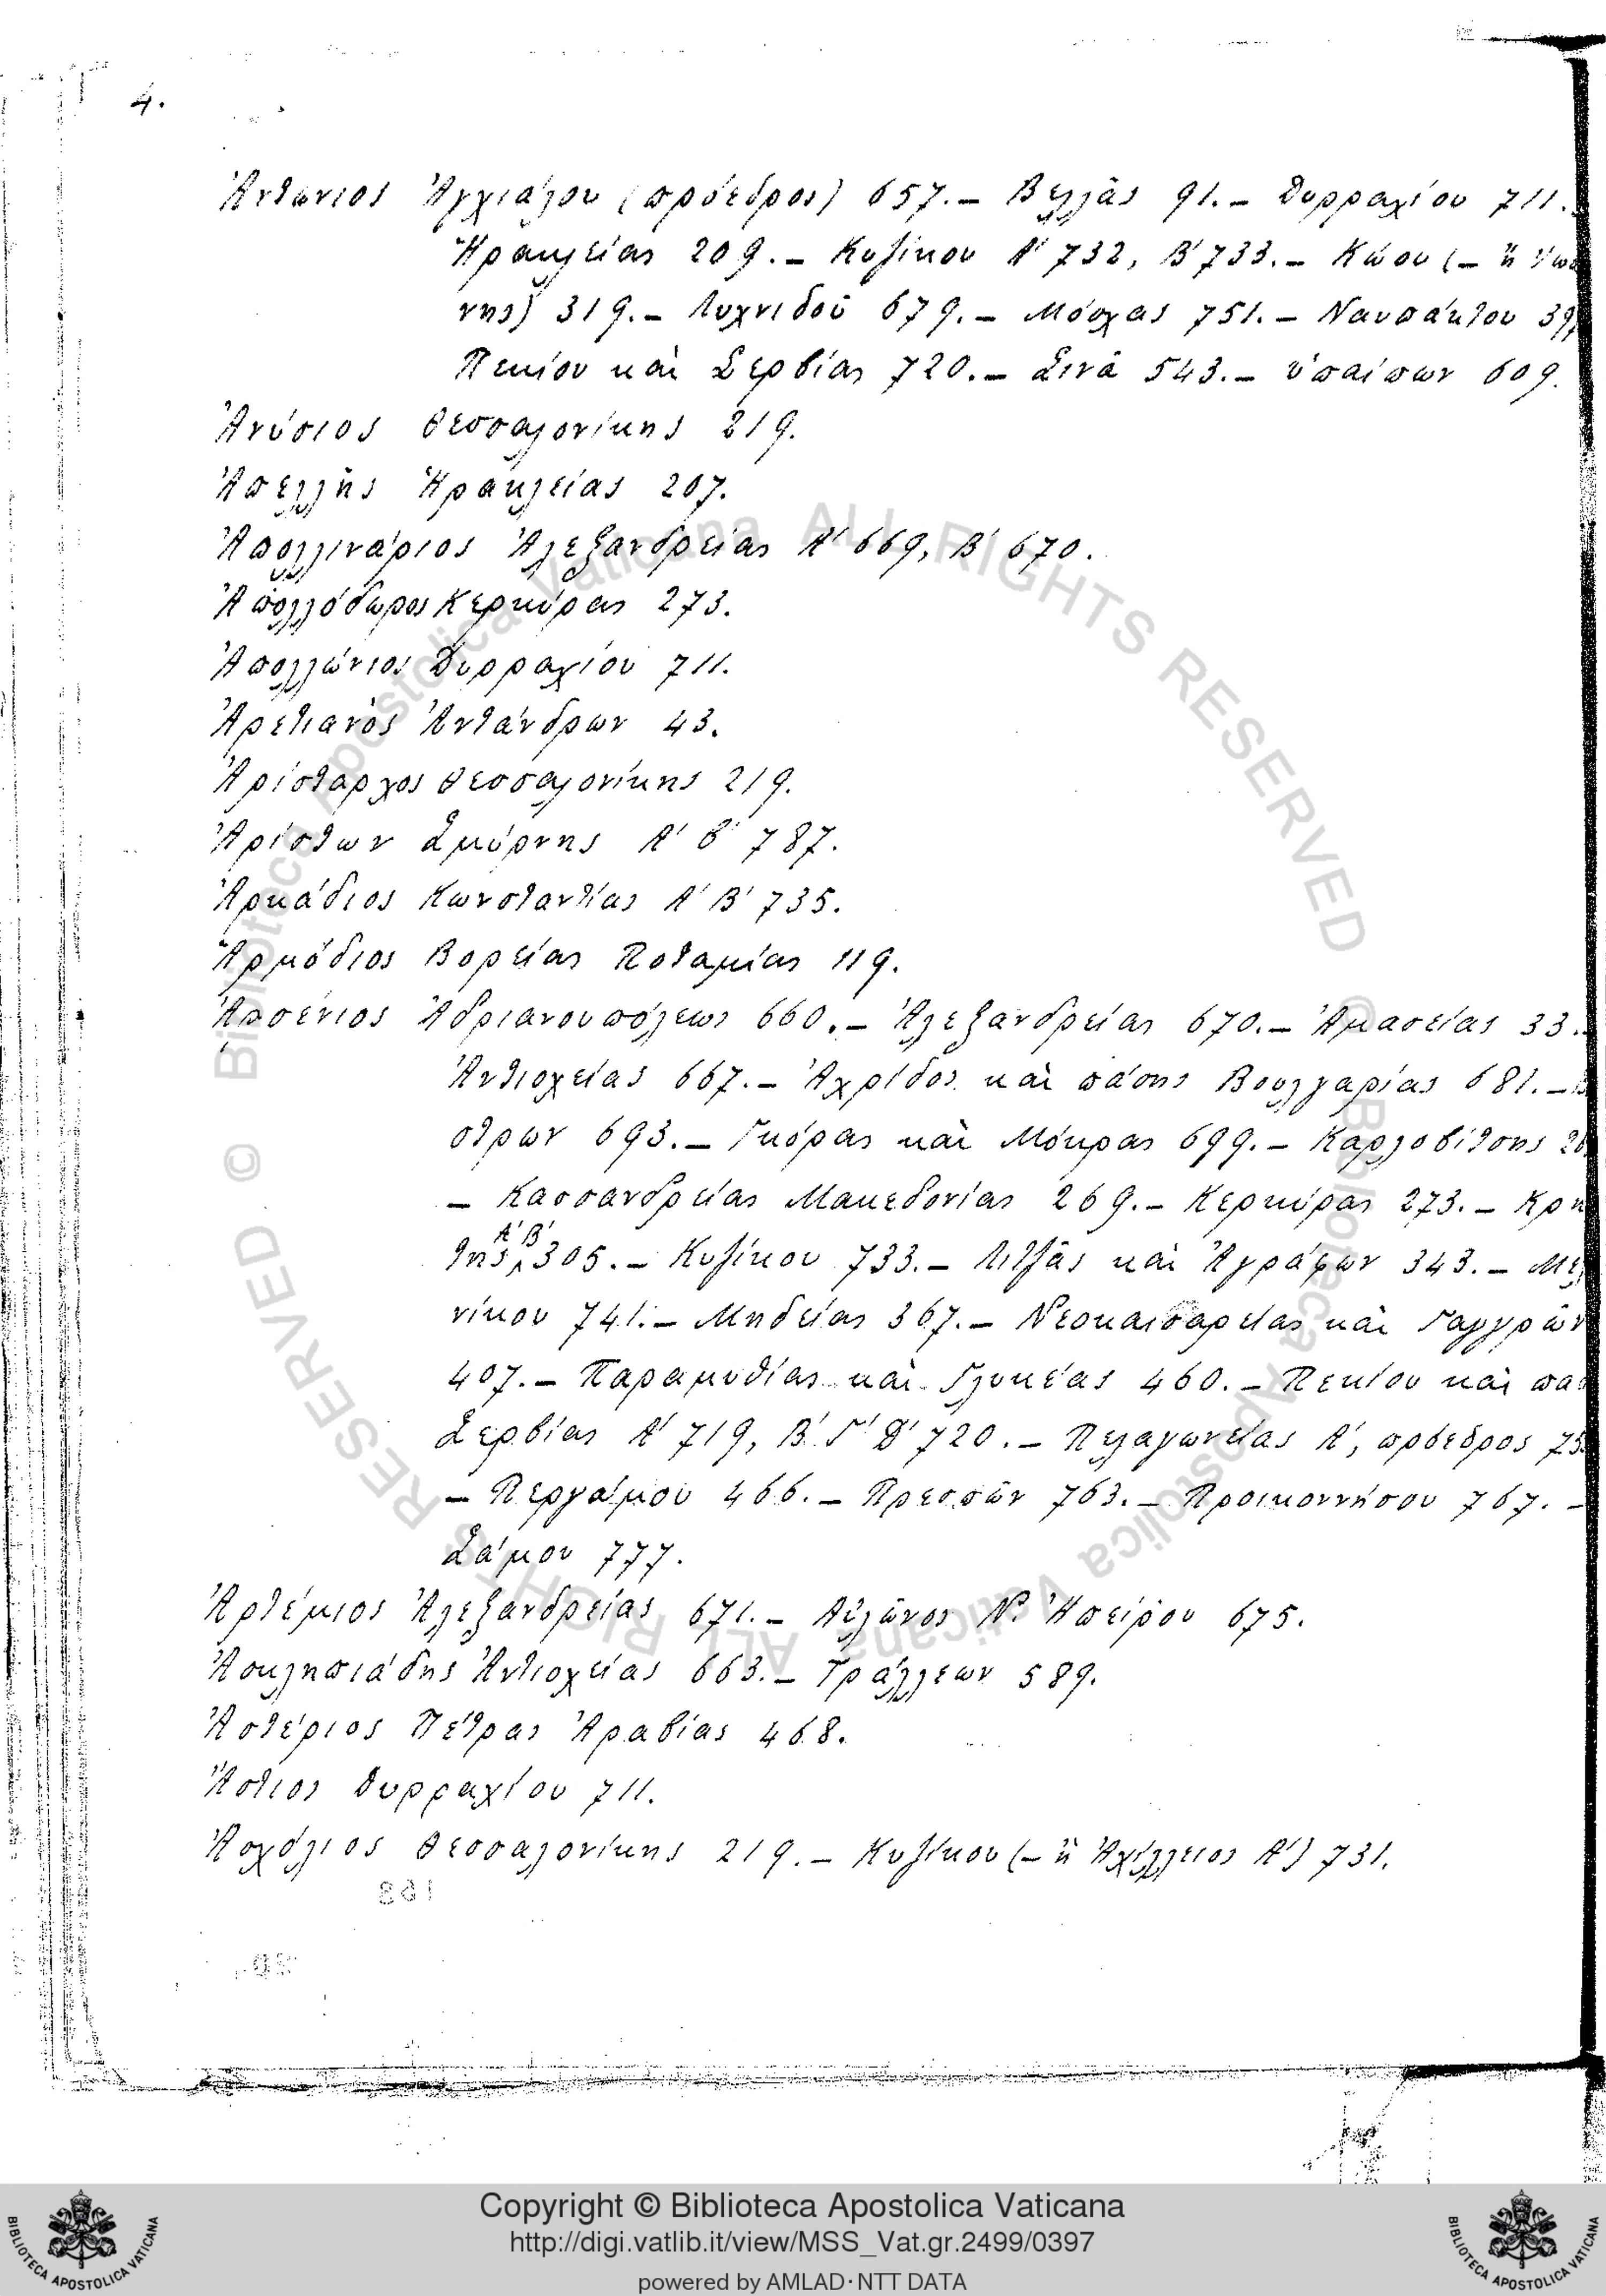 4.
Ἀνθώνιος Ἀγχιάλου (πρόεδρος) 657. – Βελλᾶς 91. – Δυρραχίου 711.
Ἡρακλείας 209. – Κυζίκου Α΄ 732, Β΄ 733. – Κώου (– ἢ
νης) 319. – Λυχνιδοῦ 679. – Μόσχας 751. – Ναυπάκτου
Πεκίου καὶ Σερβίας 720. – Σινᾶ 543. – Ὑπαίπων 609.
Ἀνύσιος Θεσσαλονίκης 219.
Ἀπελλῆς Ἡρακλείας 207.
Ἀπολλινάριος Ἀλεξανδρείας Α΄ 669, Β΄ 670.
Ἀπολλόδωρος Κερκύρας 273.
Ἀπολλώνιος Δυρραχίου 711.
Ἀρετιανὸς Ἀντάνδρων 43.
Ἀρίσταρχος Θεσσαλονίκης 219.
Ἀρίστων Σμύρνης Α΄ Β΄ 787.
Ἀρκάδιος Κωνσταντίας Α΄ Β΄ 735.
Ἁρμόδιος Βορείας Ποταμίας 119.
Ἀρσένιος Ἀδριανουπόλεως 660. – Ἀλεξανδρείας 670. – Ἀμασείας 33.
Ἀντιοχείας 667. – Ἀχρίδος καὶ πάσης Βουλγαρίας 681. –
στρων 693. – Γκόρας καὶ Μόκρας 699. – Καρλοβίτσης
– Κασσανδρείας Μακεδονίας 269. – Κερκύρας 273. – Κρή
της Α΄ Β΄ 305. – Κυζίκου 733. – Λιτζᾶς καὶ Ἀγράφων 343. – Με
νίκου 741. – Μηδείας 367. – Νεοκαισαρείας καὶ Γαγγρῶν
407. – Παραμυθίας καὶ Γλυκέας 460. – Πεκίου καὶ πα
Σερβίας Α΄ 719, Β΄ Γ΄ Δ΄ 720. – Πελαγωνείας Α΄, πρόεδρος
– Περγάμου 466. – Πρεσπῶν 763. – Προικοννήσου 767. –
Σάμου 777.
Ἀρτέμιος Ἀλεξανδρείας 671. – Αὐλῶνος Ν. Ἠπείρου 675.
Ἀσκληπιάδης Ἀντιοχείας 663. – Τράλλεων 589.
Ἀστέριος Πέτρας Ἀραβίας 468.
Ἄστιος Δυρραχίου 711.
Ἀσχόλιος Θεσσαλονίκης 219. – Κυζίκου (– ἢ Ἀχίλλειος Α΄) 731.
© Biblioteca Apostolica Vaticana ALL RIGHTS RESERVED
© Biblioteca Apostolica Vaticana ALL RIGHTS RESERVED
Copyright © Biblioteca Apostolica Vaticana
http://digi.vatlib.it/view/MSS_Vat.gr.2499/0397
powered by AMLAD·NTT DATA
BIBLIOTECA APOSTOLICA VATICANA
BIBLIOTECA APOSTOLICA VATICANA